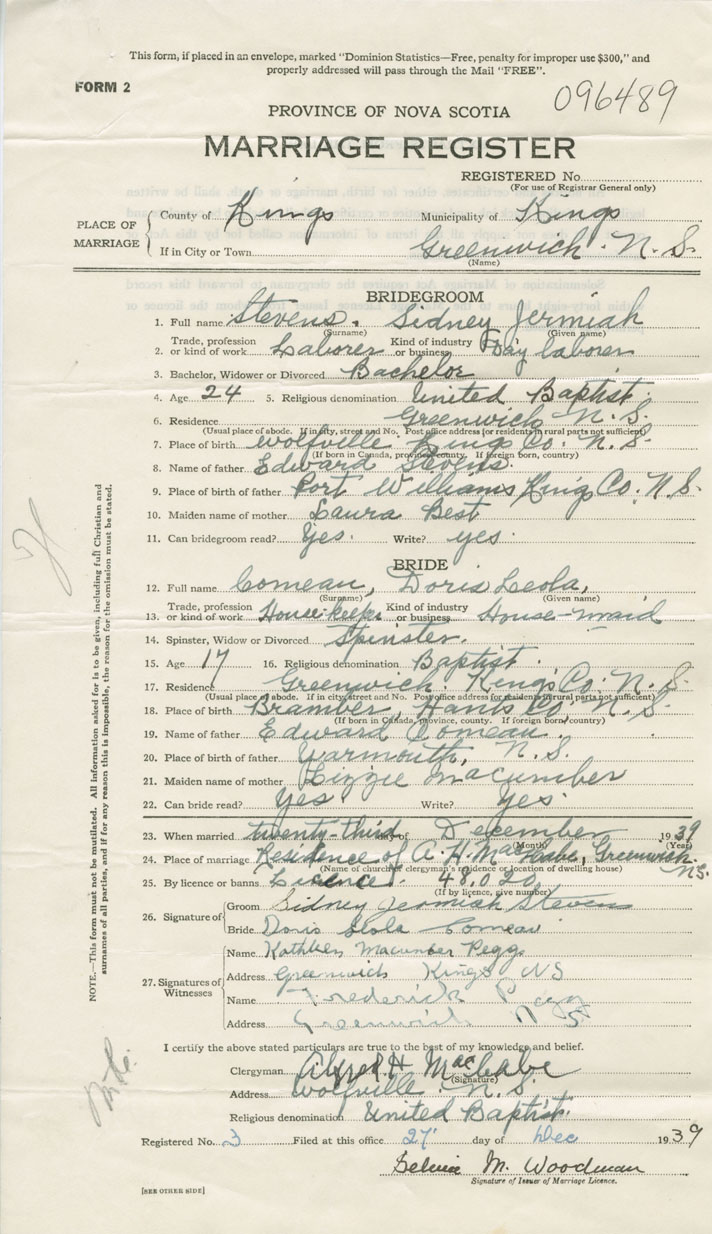 This form, if placed in an envelope, marked "Dominion Statistics—Free, penalty for improper use $300," and
properly addressed will pass through the Mail "FREE".
FORM 2
096489
PROVINCE OF NOVA SCOTIA
MARRIAGE REGISTER
REGISTERED No.
(For use of Registrar General only)
PLACE OF MARRIAGE
County of Kings Municipality of Kings
If in City or Town Greenwich. N. S.
(Name)
BRIDEGROOM
1. Full name Stevens. Sidney Jermiah
(Surname) (Given name)
2. Trade, profession or kind of work Laborer Kind of industry or business Day laborer
3. Bachelor, Widower or Divorced Bachelor
4. Age 24 5. Religious denomination United Baptist.
6. Residence Greenwich N. S.
(Usual place of abode. If in city, street and No. Post office address for residents in rural parts not sufficient)
7. Place of birth Wolfville Kings Co. N. S.
(If born in Canada, province, county. If foreign born, country)
8. Name of father Edward Stevens.
9. Place of birth of father Port Williams Kings Co. N. S.
10. Maiden name of mother Laura Best
11. Can bridegroom read? Yes. Write? yes.
BRIDE
12. Full name Comeau, Doris Leola,
(Surname) (Given name)
13. Trade, profession or kind of work House-keeper Kind of industry or business House-maid
14. Spinster, Widow or Divorced Spinster.
15. Age 17 16. Religious denomination Baptist.
17. Residence Greenwich. Kings Co. N. S.
(Usual place of abode. If in city, street and No. Post office address for residents in rural parts not sufficient)
18. Place of birth Bramber, Hants Co. N. S.
(If born in Canada, province, county. If foreign born, country)
19. Name of father Edward Comeau.
20. Place of birth of father Yarmouth, N. S.
21. Maiden name of mother Lizzie Macumber
22. Can bride read? Yes. Write? Yes.
23. When married twenty-third day of December 1939
(Month) (Year)
24. Place of marriage Residence of A. H. MacCabe, Greenwich. N.S.
(Name of church or clergyman's residence or location of dwelling house)
25. By licence or banns Licence. 48,020
(If by licence, give number)
26. Signature of
Groom Sidney Jermiah Stevens
Bride Doris Leola Comeau
27. Signatures of Witnesses
Name Kathleen Macumber Pegg
Address Greenwich Kings NS
Name Frederick Pegg
Address Greenwich N S
I certify the above stated particulars are true to the best of my knowledge and belief.
Clergyman Alfred H. MacCabe
(Signature)
Address Wolfville. N. S.
Religious denomination United Baptist.
Registered No. 3 Filed at this office 27 day of Dec 1939
Selina M. Woodman
Signature of Issuer of Marriage Licence.
[SEE OTHER SIDE]
NOTE.—This form must not be mutilated. All information asked for is to be given, including full Christian and
surnames of all parties, and if for any reason this is impossible, the reason for the omission must be stated.